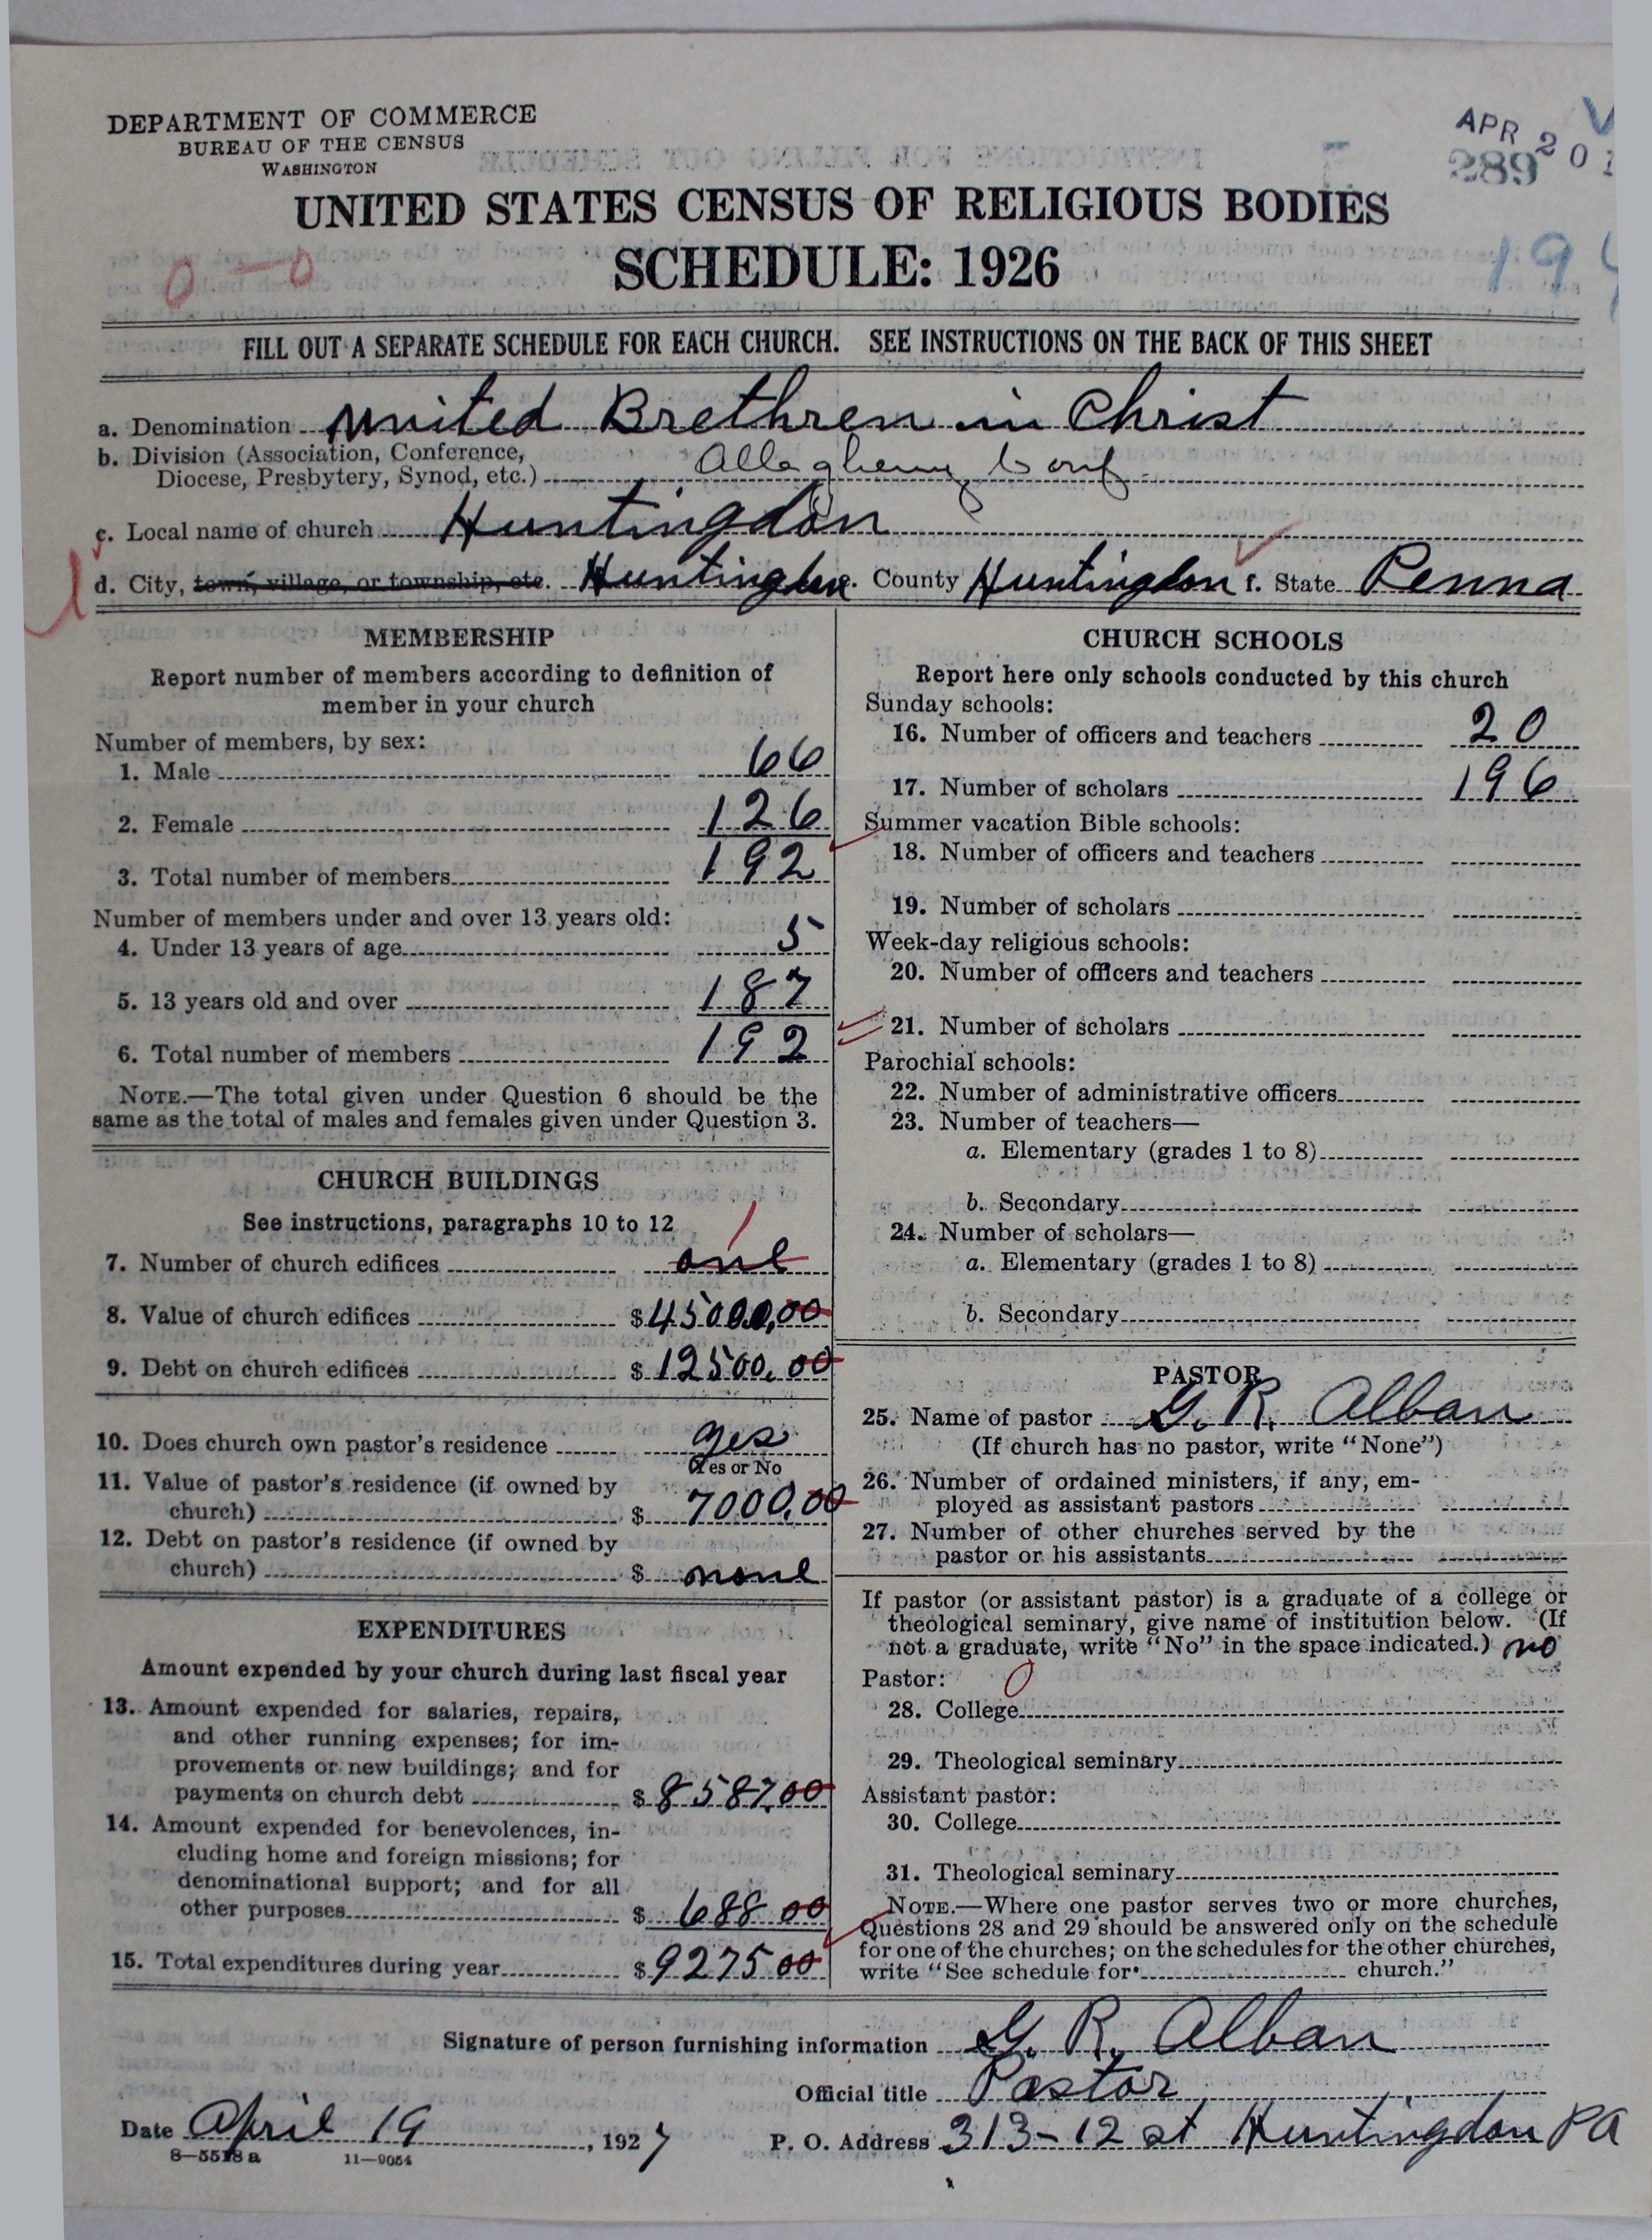 DEPARTMENT OF COMMERCE
BUREAU OF THE CENSUS
WASHINGTON
APR 20 1
289
UNITED STATES CENSUS OF RELIGIOUS BODIES
SCHEDULE: 1926
0 – 0
19
FILL OUT A SEPARATE SCHEDULE FOR EACH CHURCH. SEE INSTRUCTIONS ON THE BACK OF THIS SHEET
a. Denomination United Brethren in Christ
b. Division (Association, Conference,
Diocese, Presbytery, Synod, etc.) Allegheny Conf.
c. Local name of church Huntingdon
d. City, town, village, or township, etc. Huntingdon e. County Huntingdon f. State Penna
MEMBERSHIP
Report number of members according to definition of
member in your church
Number of members, by sex:
1. Male 66
2. Female 126
3. Total number of members 192
Number of members under and over 13 years old:
4. Under 13 years of age 5
5. 13 years old and over 187
6. Total number of members 192
NOTE.—The total given under Question 6 should be the
same as the total of males and females given under Question 3.
CHURCH BUILDINGS
See instructions, paragraphs 10 to 12
7. Number of church edifices one 1
8. Value of church edifices $45000.00
9. Debt on church edifices $12500.00
10. Does church own pastor's residence yes
(Yes or No
11. Value of pastor's residence (if owned by
church) $ 7000.00
12. Debt on pastor's residence (if owned by
church) $ none
EXPENDITURES
Amount expended by your church during last fiscal year
13. Amount expended for salaries, repairs,
and other running expenses; for im-
provements or new buildings; and for
payments on church debt $8587.00
14. Amount expended for benevolences, in-
cluding home and foreign missions; for
denominational support; and for all
other purposes $ 688 00
15. Total expenditures during year $9275 00
CHURCH SCHOOLS
Report here only schools conducted by this church
Sunday schools:
16. Number of officers and teachers 20
17. Number of scholars 196
Summer vacation Bible schools:
18. Number of officers and teachers
19. Number of scholars
Week-day religious schools:
20. Number of officers and teachers
21. Number of scholars
Parochial schools:
22. Number of administrative officers
23. Number of teachers—
a. Elementary (grades 1 to 8)
b. Secondary
24. Number of scholars—
a. Elementary (grades 1 to 8)
b. Secondary
PASTOR
25. Name of pastor G. R. Alban
(If church has no pastor, write "None")
26. Number of ordained ministers, if any, em-
ployed as assistant pastors
27. Number of other churches served by the
pastor or his assistants
If pastor (or assistant pastor) is a graduate of a college or
theological seminary, give name of institution below. (If
not a graduate, write "No" in the space indicated.) no
Pastor: 0
28. College
29. Theological seminary
Assistant pastor:
30. College
31. Theological seminary
NOTE.—Where one pastor serves two or more churches,
Questions 28 and 29 should be answered only on the schedule
for one of the churches; on the schedules for the other churches,
write "See schedule for church."
Signature of person furnishing information G. R. Alban
Official title Pastor
Date April 19, 1927 P. O. Address 313-12 st Huntingdon PA
8—5518 a 11—9054